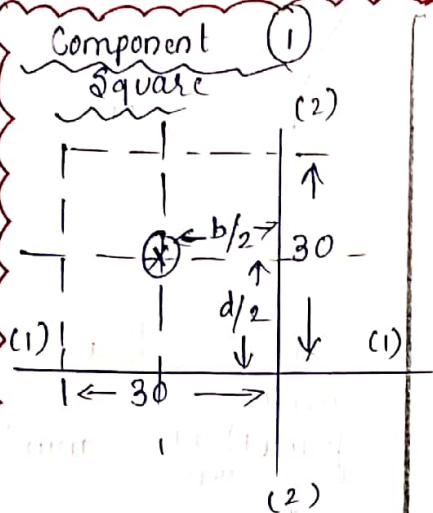 Component (1)
Square
(2)
b/2
30
d/2
(1) (1)
30
(2)